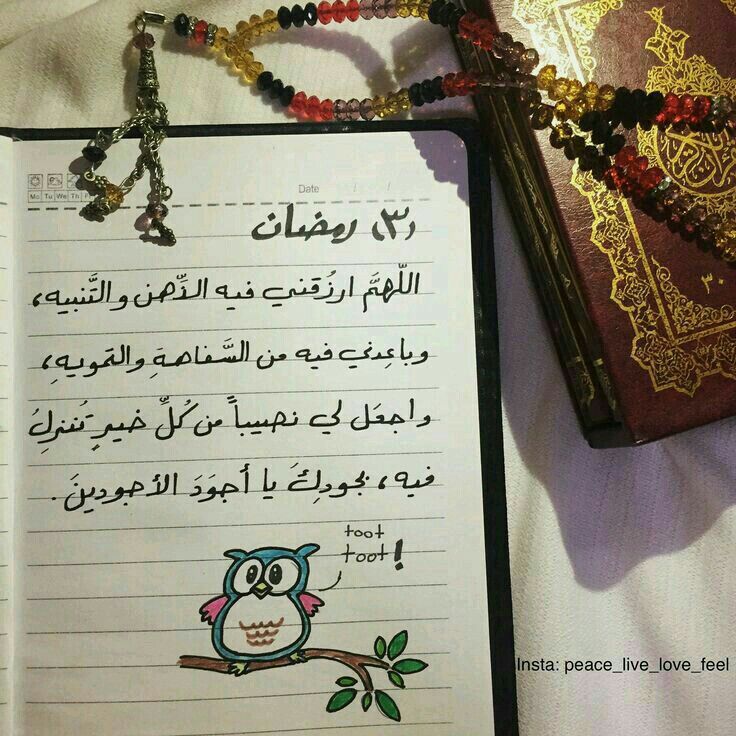 Date / /
Mo Tu We Th
(٣) رمضان
اللّهمَّ ارزُقني فيه الذّهن والتَّنبيه،
وباعِدني فيه من السَّفاهةِ والتمويهِ،
واجعَل لي نصيباً من كُلِّ خيرٍ تُنزلُ
فيه، بجودِكَ يا أجوَدَ الأجودينَ.
toot
toot!
٣٠
Insta: peace_live_love_feel